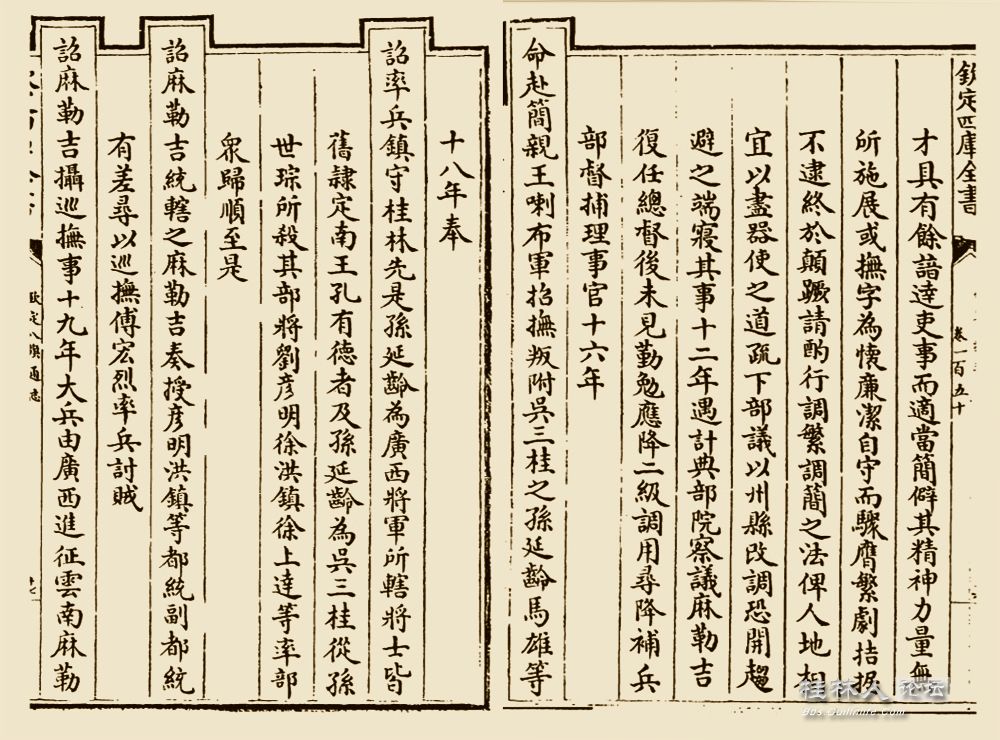 欽定四庫全書
卷一百五十
才具有餘諳達吏事而適當簡僻其精神力量無
所施展或撫字為懷廉潔自守而驟膺繁劇拮据
不逮終於顛蹶請酌行調繁調簡之法俾人地相
宜以盡器使之道疏下部議以州縣改調恐開趨
避之端寢其事十二年遇計典部院察議麻勒吉
復任總督後未見勤勉應降二級調用尋降補兵
部督捕理事官十六年
命赴簡親王喇布軍招撫叛附吳三桂之孫延齡馬雄等
十八年奉
詔率兵鎮守桂林先是孫延齡為廣西將軍所轄將士皆
舊隷定南王孔有德者及孫延齡為吳三桂從孫
世琮所殺其部將劉彦明徐洪鎮徐上達等率部
眾歸順至是
詔麻勒吉統轄之麻勒吉奏授彦明洪鎮等都統副都統
有差尋以巡撫傅宏烈率兵討賊
詔麻勒吉攝巡撫事十九年大兵由廣西進征雲南麻勒
欽定八旗通志
桂林人论坛